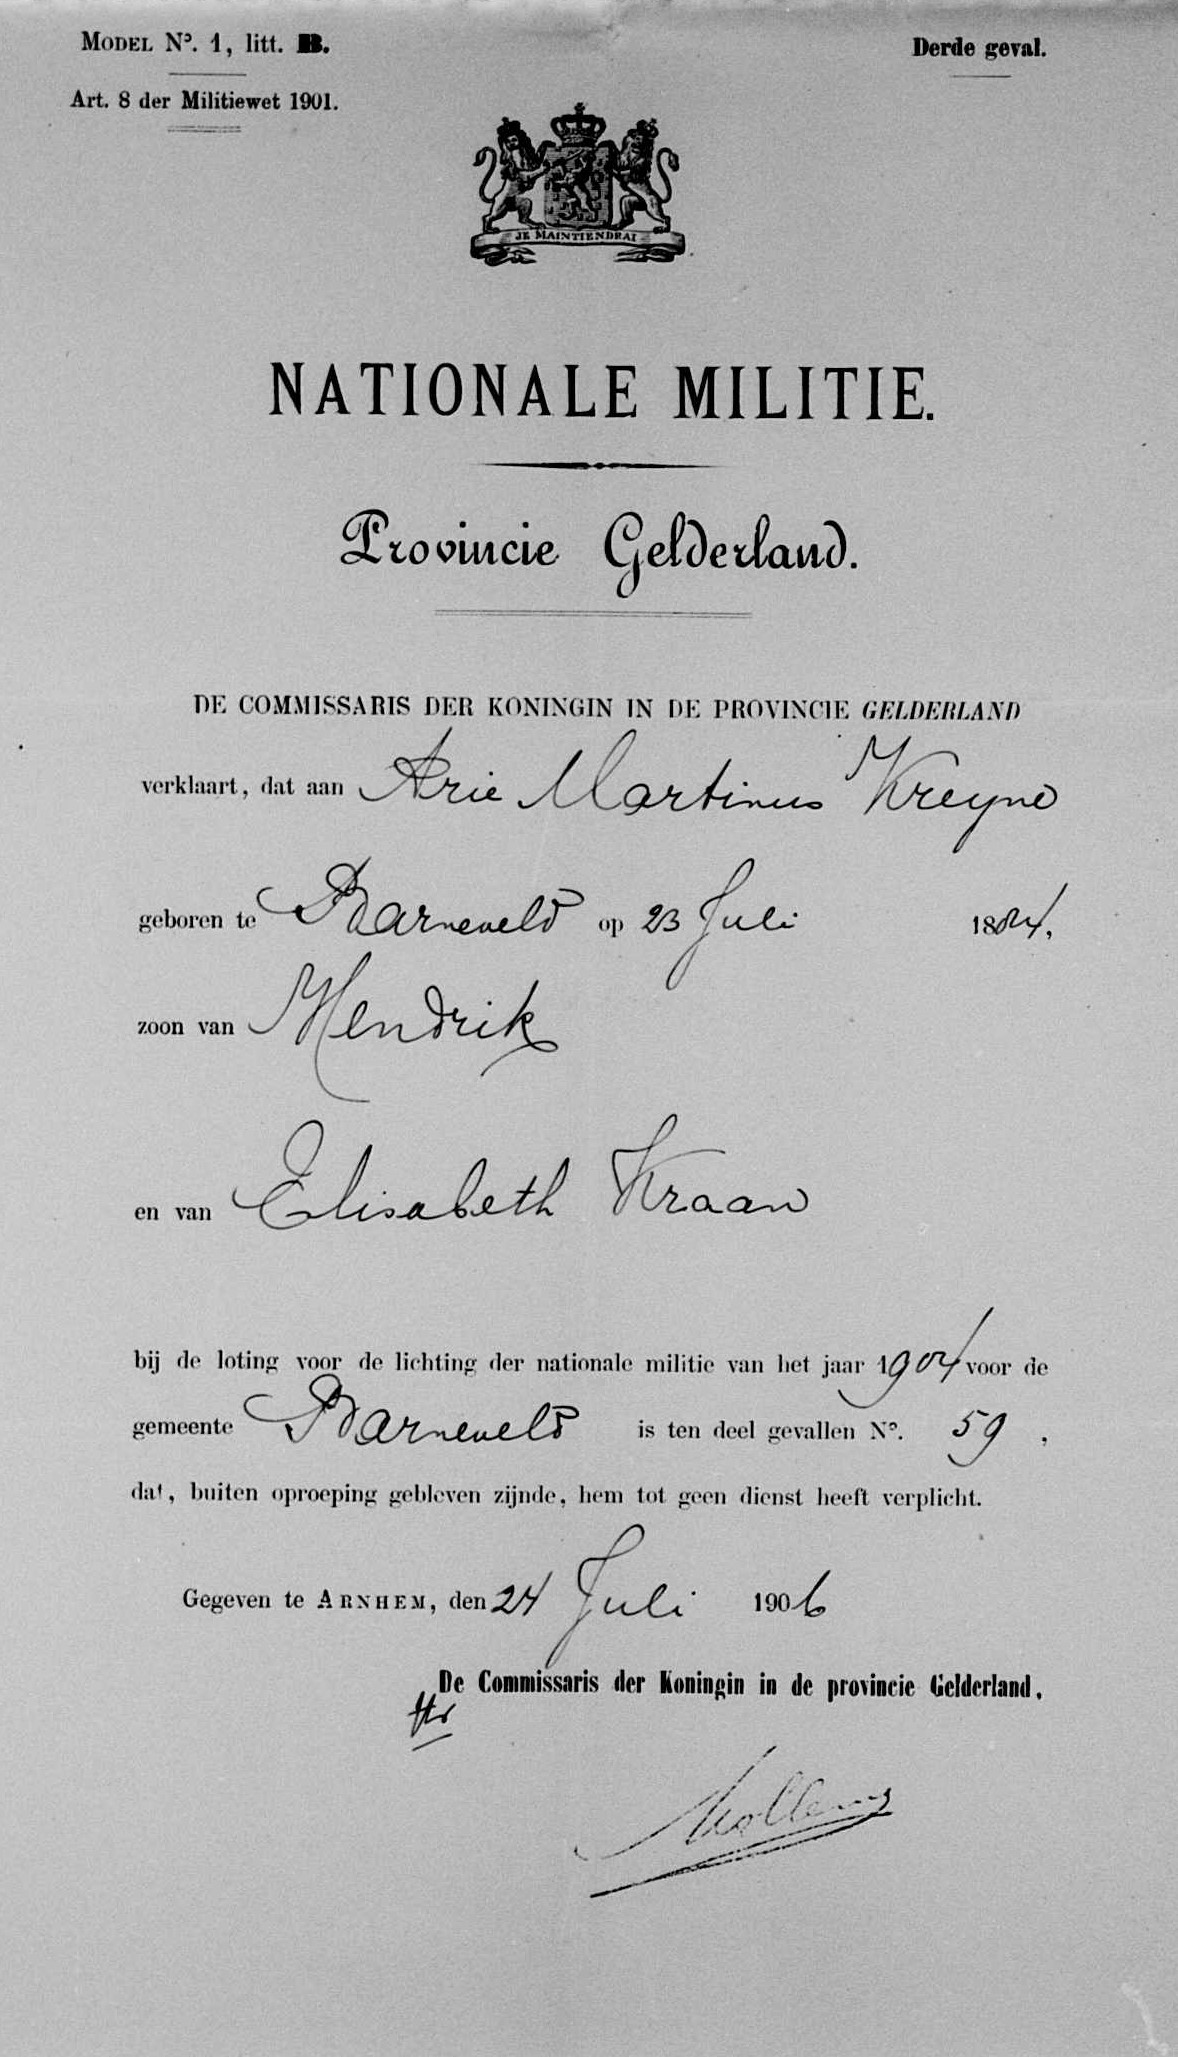 MODEL No. 1, litt. B.
Derde geval.
Art. 8 der Militiewet 1901.
JE MAINTIENDRAI
NATIONALE MILITIE.
Provincie Gelderland.
DE COMMISSARIS DER KONINGIN IN DE PROVINCIE GELDERLAND
verklaart, dat aan Arie Martinus Kreyne
geboren te Barneveld op 23 Juli 1884,
zoon van Hendrik
en van Elisabeth Kraan
bij de loting voor de lichting der nationale militie van het jaar 1904 voor de
gemeente Barneveld is ten deel gevallen No. 59,
dat, buiten oproeping gebleven zijnde, hem tot geen dienst heeft verplicht.
Gegeven te ARNHEM, den 24 Juli 1906
De Commissaris der Koningin in de provincie Gelderland,